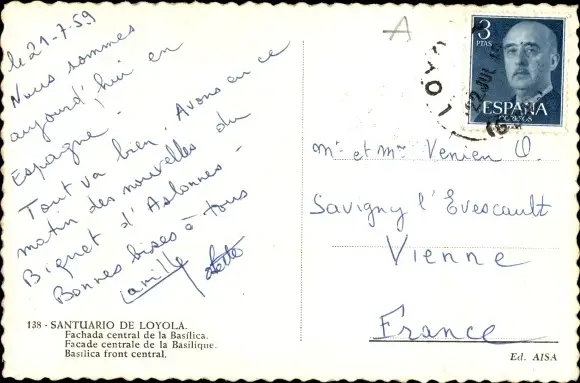 le 21-7-59
Nous sommes
aujourd'hui en
Espagne -
Tout va bien. Avons eu ce
matin des nouvelles du
Biquet d'Aslonnes -
Bonnes bises à tous
138 - SANTUARIO DE LOYOLA.
Fachada central de la Basílica.
Facade centrale de la Basilique.
Basilica front central.
A
LOYO
22 JUL
3
PTAS
ESPAÑA
CORREOS
Mr et Mme Venien O.
Savigny l'Evescault
Vienne
France
Ed. AISA